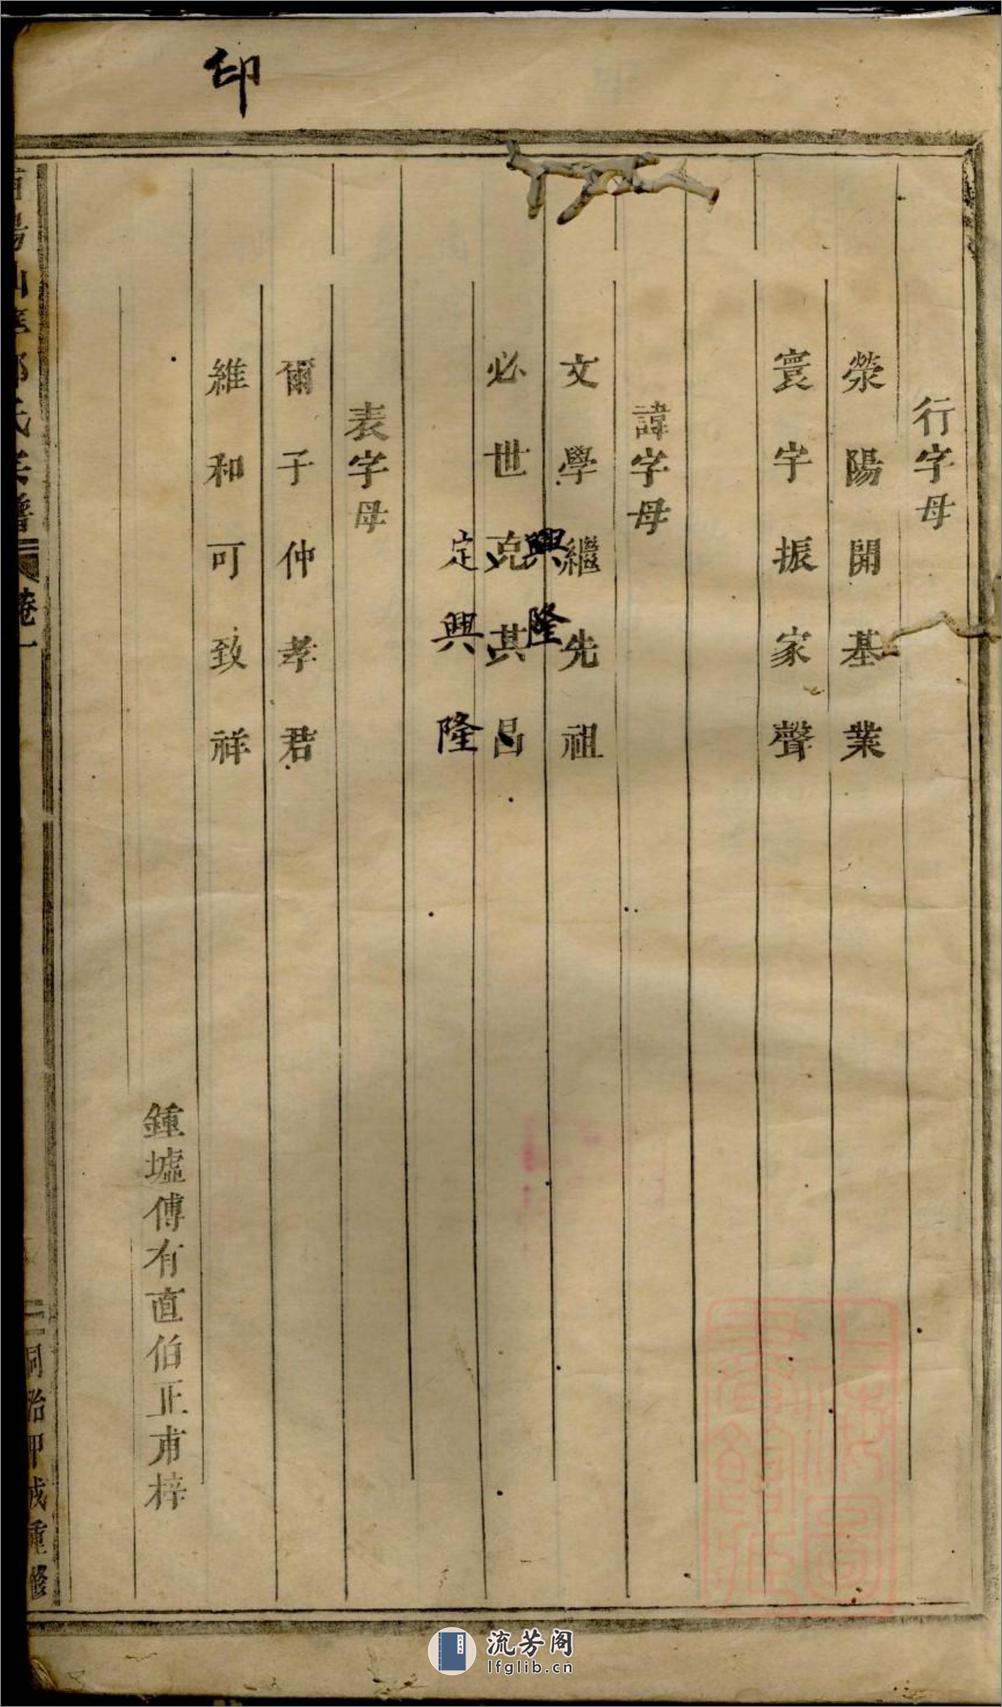 印
行字母
滎陽開基業
寰宇振家聲
諱字母
文學繼先祖
興隆
必世克其昌
定興隆
表字母
爾子仲孝君
維和可致祥
鍾墟傅有直伯正甫梓
氏宗譜
卷一
同治甲戌重修
流芳阁
lfglib.cn